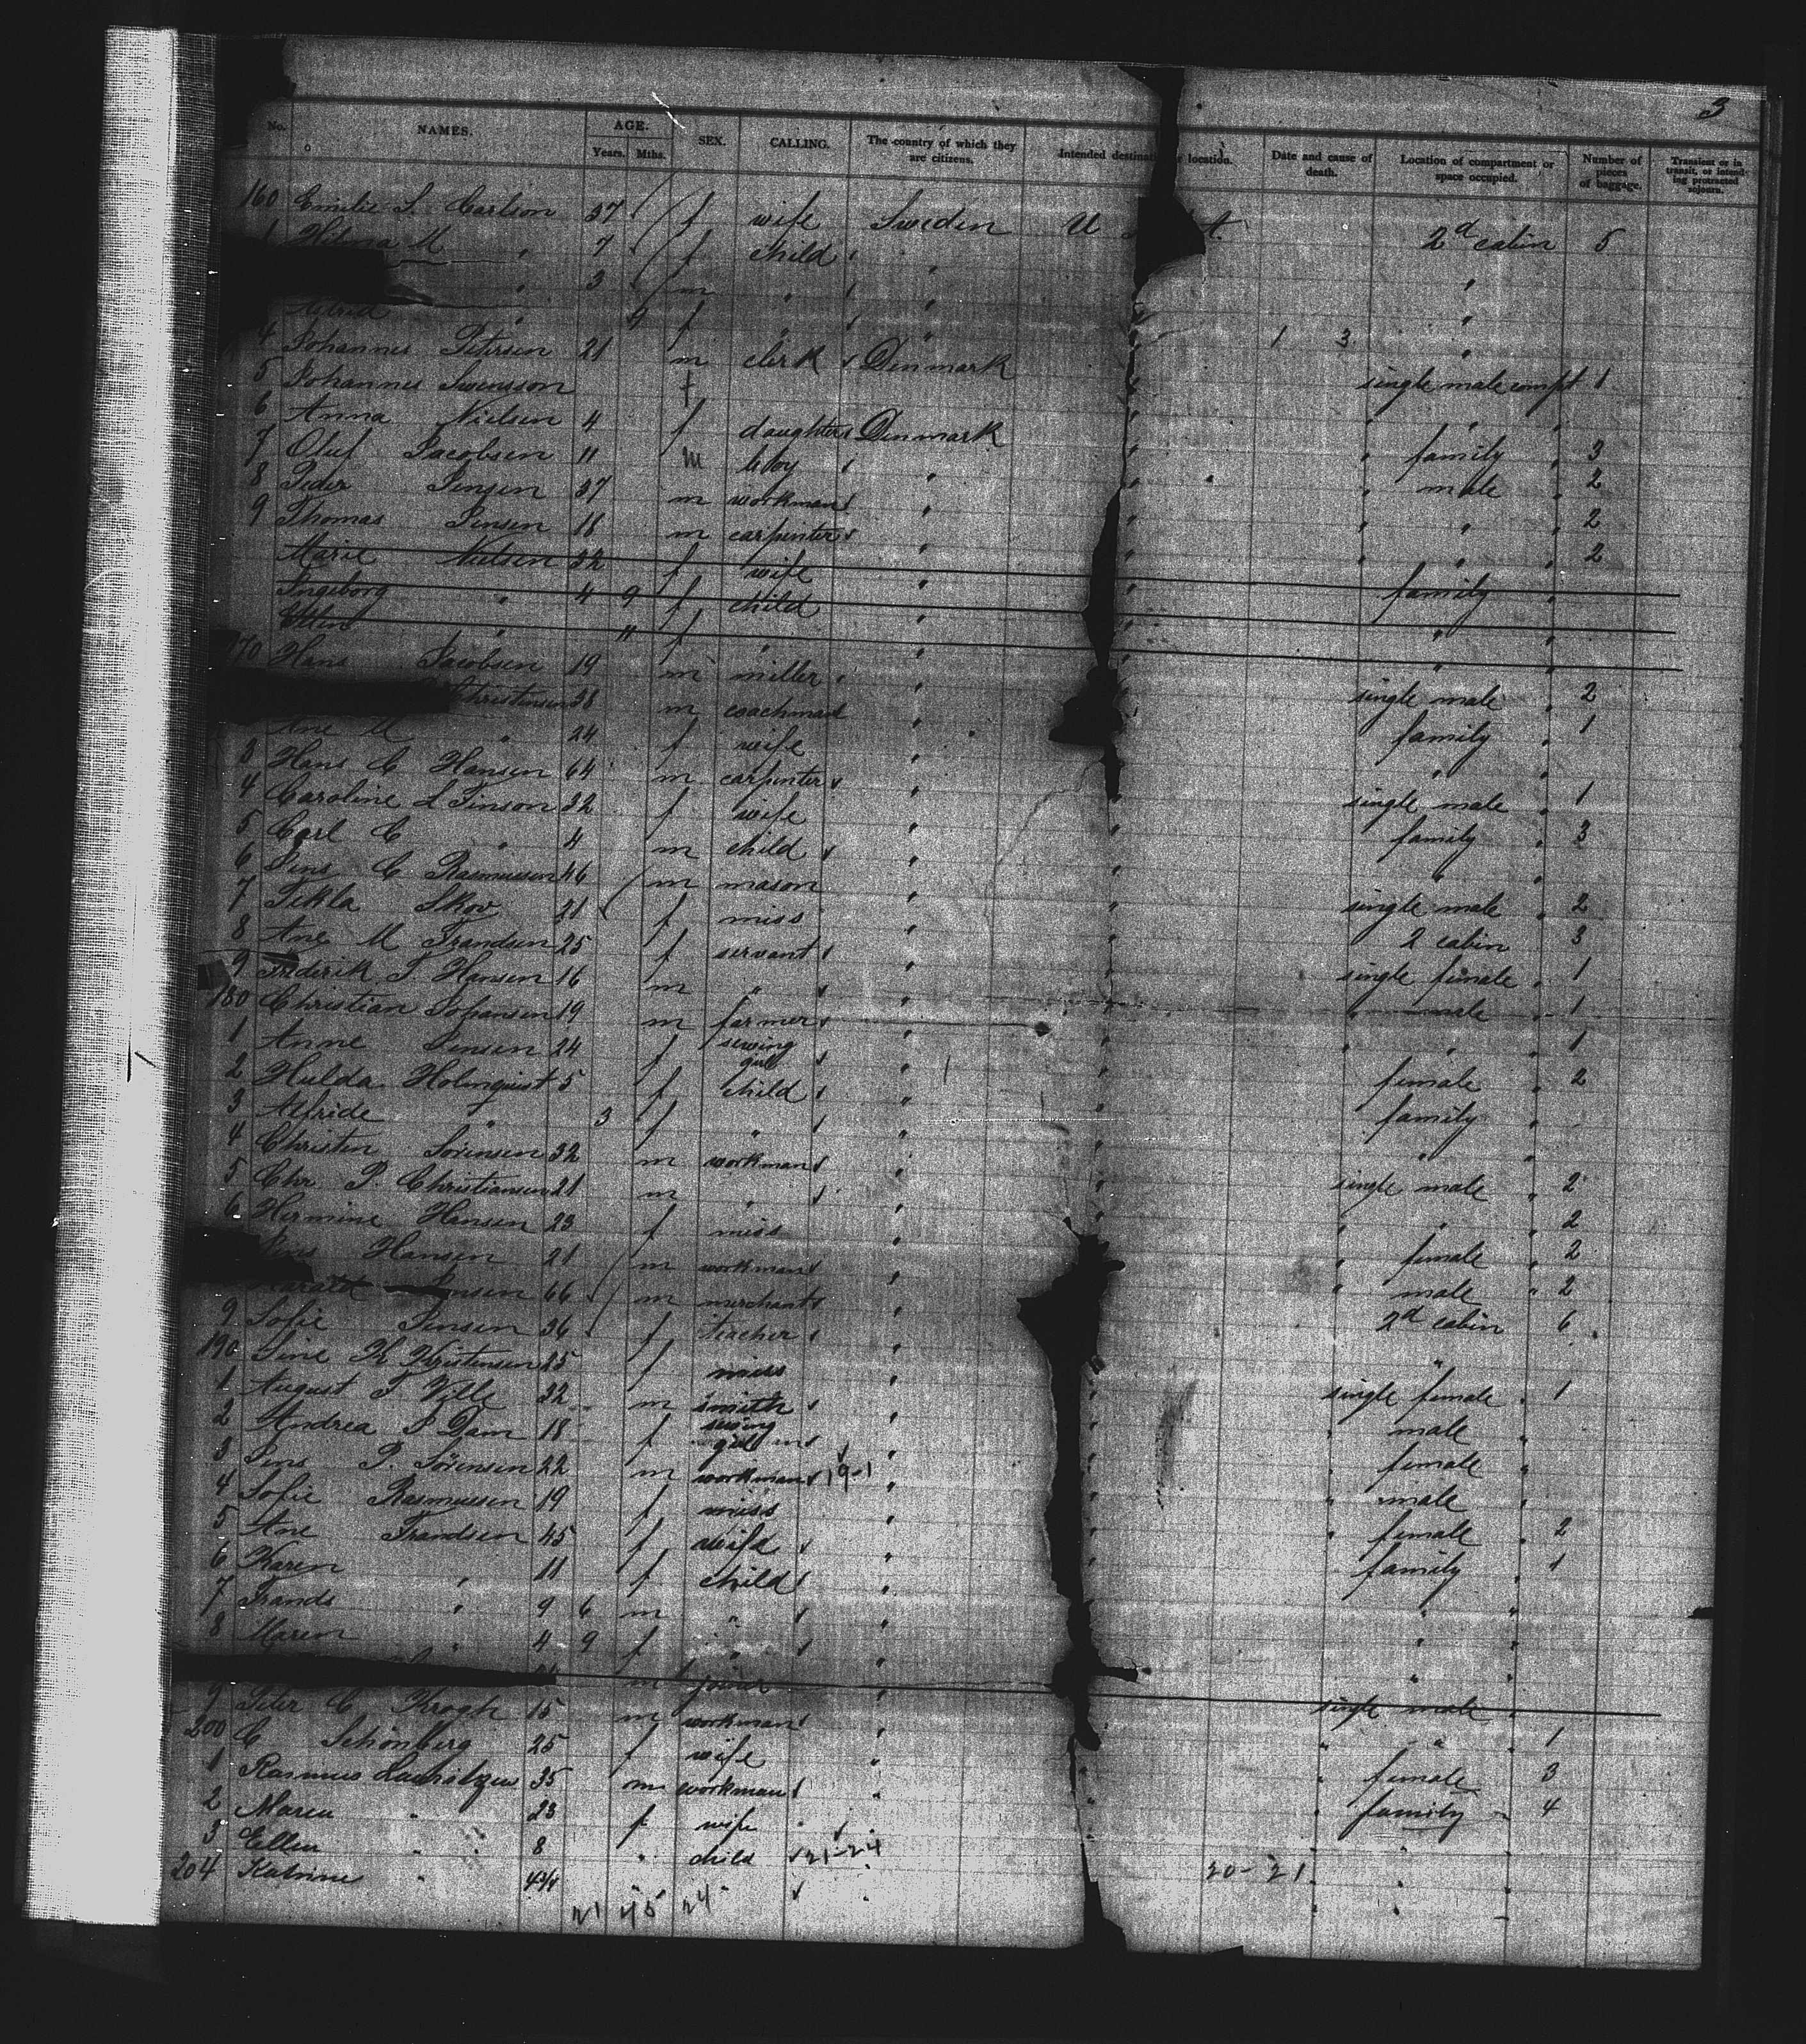 3
No. NAMES. AGE. Years. Mths. SEX. CALLING. The country of which they are citizens. Intended destinati location. Date and cause of death. Location of compartment or space occupied. Number of pieces of baggage. Transient or in transit, or intending protracted sojourn.
160 Emilie S. Carlson 37 f wife Sweden U 2d cabin 5
1 Hilma M " 7 f child " "
" 3 m " " "
" 9 f " " 1 3 "
4 Johannes Petersen 21 m clerk Denmark " single male compt 1
5 Johannes Swensson " " "
6 Anna Nielsen 4 f daughter Denmark " " family " 3
7 Oluf Jacobsen 11 m boy " " " male " 2
8 Peder Jensen 37 m workman " " " " " 2
9 Thomas Jensen 18 m carpenter " " " " " 2
Marie Nielsen 32 f wife " " family "
Ingeborg " 4 9 f child " " " "
Ellen " 11 f " " " " "
170 Hans Jacobsen 19 m miller " " single male " 2
Christensen 38 m coachman " " family " 1
Ane M " 24 f wife " " "
3 Hans C Hansen 64 m carpenter " single male " 1
4 Caroline L Jenson 32 f wife " " family " 3
5 Carl C " 4 m child " " " "
6 Jens C Rasmussen 46 m mason " single male " 2
7 Tekla Skov 21 f miss " " 2 cabin 3
8 Ane M Frandsen 25 f servant " " single female " 1
9 Frederik J Hansen 16 m " " " " male " 1
180 Christian Johansen 19 m farmer " " " " " 1
1 Anne Jensen 24 f sewing girl " " female " 2
2 Hulda Holmquist 5 f child " " family "
3 Alfride " 3 f " " " " "
4 Christen Sörensen 32 m workman " " single male " 2
5 Chr P. Christiansen 21 m " " " " " " 2
6 Hermine Hansen 23 f miss " " female " 2
Jens Hansen 21 m workman " " male " 2
66 m merchant " 2d cabin 6
9 Sofie Jensen 36 f teacher " "
190 Sine K Kristensen 25 f miss " " single female " 1
1 August J 22 m smith " " " male "
2 Andrea Dam 18 f sewing girl " " female "
3 Jens P. Sörensen 22 m workman 19-1 " " " male "
4 Sofie Rasmussen 19 f miss " " " female " 2
5 Ane Frandsen 45 f wife " " family " 1
6 Karen " 11 f child " " " "
7 Frands " 9 6 m " " " "
8 Maren " 4 9 f " " "
m " single male "
9 Peter C Krogh 15 m workman " " " " 1
200 C Schönberg 25 f wife " " " female 3
1 Rasmus 35 m workman " " " family " 4
2 Maren " 23 f wife " " " "
3 Ellen " 8 " child 21-24 " 20-21 " " "
204 Katrine " 4 3/4 " " " " " "
21 45 24